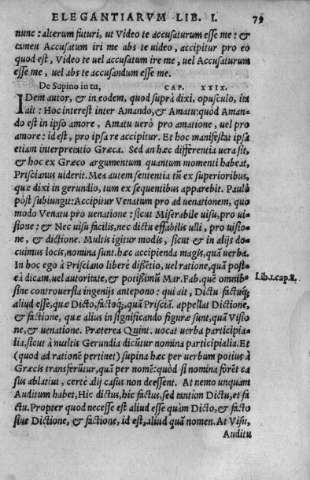 ELEGANTIARVM LIB. I. 79
nunc: alterum futuri, ut Video te accusaturum esse me: &
tamen Accusatum iri me abs te video, accipitur pro eo
quod est, Video te uel accusatum ire me, uel Accusaturum
esse me, uel abs te accusandum esse me.
De Supino in tu, CAP. XXIX.
IDem autor, & in eodem, quod suprà dixi, opusculo, in
ait: Hoc interest inter Amando, & Amatu: quòd Aman-
do est in ipso amore, Amatu uerò pro amatione, uel pro
amore: id est, pro ipsa re accipitur. Et hoc manifestū ipsa
etiam interpretatio Græca. Sed an hæc differentia uera sit,
& hoc ex Græco argumentum quantum momenti habeat,
Priscianus uiderit. Mea autem sententia tū ex superioribus,
quæ dixi in gerundio, tum ex sequentibus apparebit. Paulò
pòst subiungit: Accipitur Venatum pro ad uenationem, quo
modo Venatu pro uenatione: sicut Miserabile uisu, pro ui-
sione: & Nec uisu facilis, nec dictu effabilis ulli, pro uisio-
ne, & dictione. Multis igitur modis, sicut & in alijs do-
cuimus locis, nomina sunt hæc accipienda magis, quā uerba.
In hoc ego à Prisciano liberè dissentio, uel ratione, quā post-
ea dicam, uel autoritate, & potissimū Mar. Fab. quem omnibᵒ
sine controuersia ingenijs antepono: qui ait, Dictu factuq́;
aliud esse, quæ Dicto, factoq́;, quā Prisciā. appellat Dictione,
& factione, quæ alius in significando figuræ sunt, quā Visio
ne, & uenatione. Præterea Quint. uocat uerba participia-
lia, sicut à multis Gerundia dicūtur nomina participialia. Et
(quod ad rationē pertinet) supina hæc per uerbum potius à
Græcis transferūtur, quā per nomē: quòd si nomina forēt ca
sus ablatiui, certè alij casus non deessent. At nemo unquam
Auditum habet, Hic dictus, hic factus, sed tantùm Dictu, & fa
ctu. Propter quod necesse est aliud esse quàm Dicto, & facto
siue Dictione, & factione, id est, aliud quā nomen. At Visu,
Auditu
Lib.1.cap.8.